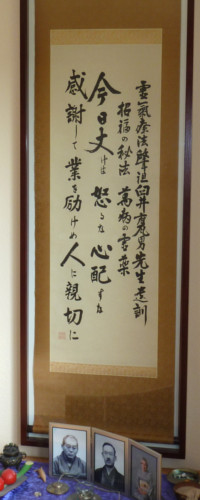 靈氣療法肇祖臼井甕男先生遺訓
招福の秘法 萬病の霊薬
今日丈けは 怒るな 心配すな
感謝して 業を励けめ 人に親切に